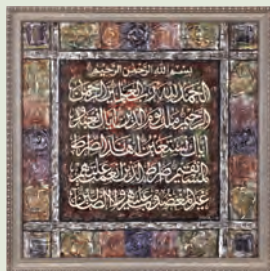 بسم الله الرحمن الرحيم
الحمد لله رب العلمين الرحمن
الرحيم ملك يوم الدين اياك نعبد
واياك نستعين اهدنا الصراط
المستقيم صراط الذين انعمت عليهم
غير المغضوب عليهم ولا الضالين